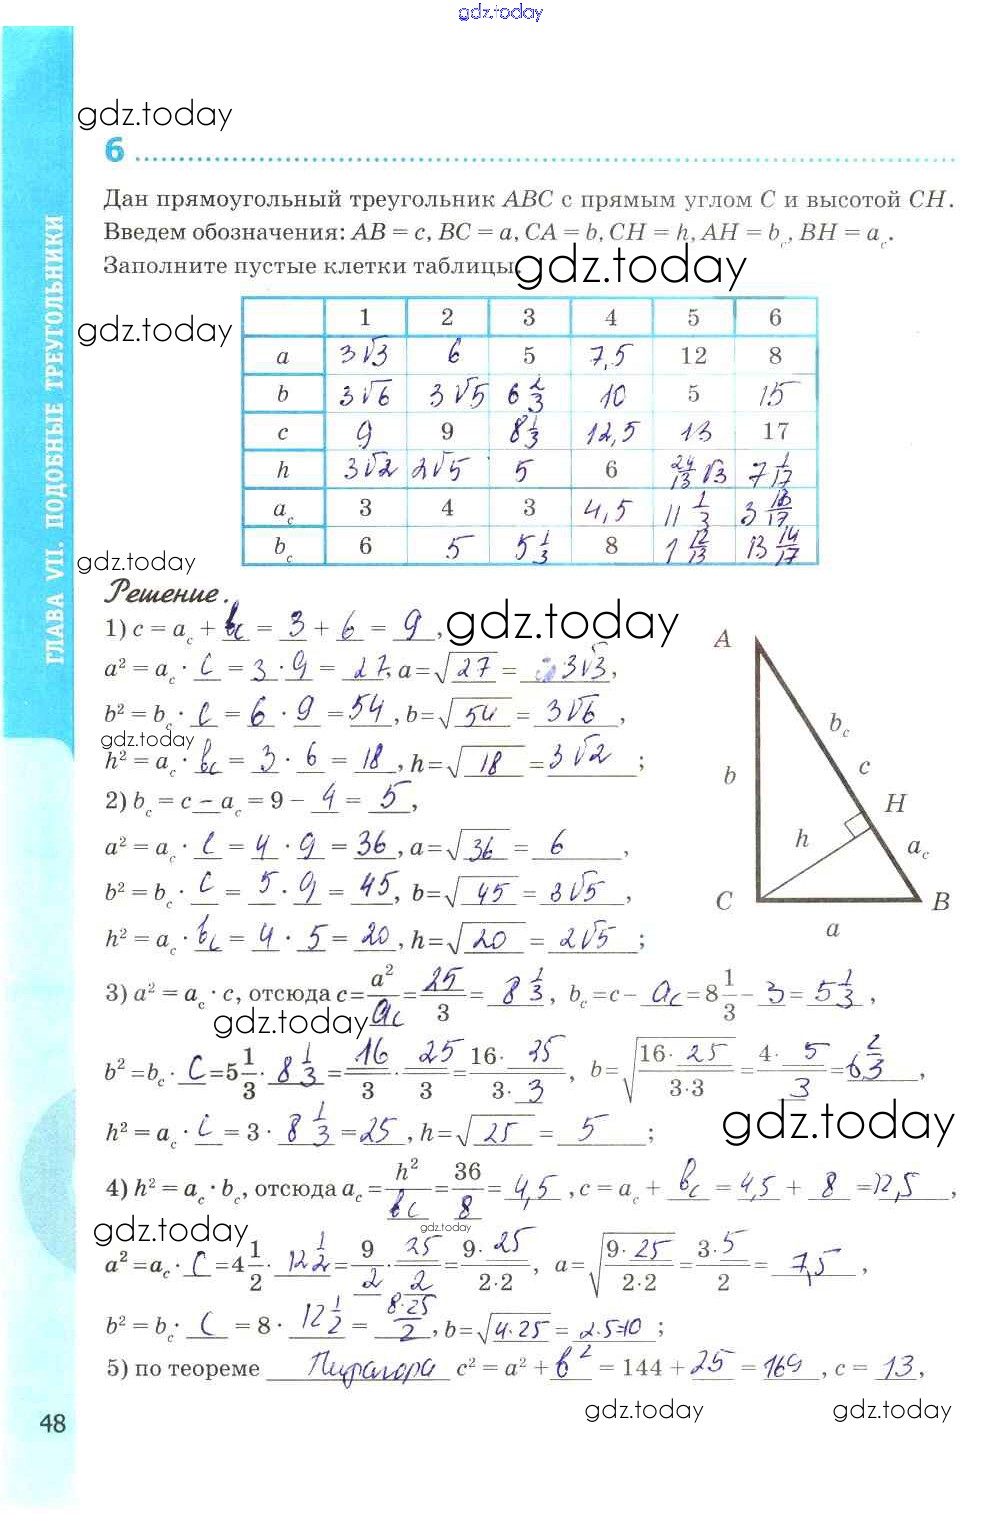 gdz.today
gdz.today
6
Дан прямоугольный треугольник ABC с прямым углом C и высотой CH.
Введем обозначения: AB = c, BC = a, CA = b, CH = h, AH = b_c, BH = a_c.
Заполните пустые клетки таблицы.
gdz.today
gdz.today
1 2 3 4 5 6
a 3√3 6 5 7,5 12 8
b 3√6 3√5 6 2/3 10 5 15
c 9 9 8 1/3 12,5 13 17
h 3√2 2√5 5 6 24/13 √3 7 1/17
a_c 3 4 3 4,5 11 1/3 3 13/17
b_c 6 5 5 1/3 8 1 12/13 13 14/17
gdz.today
Решение.
1) c = a_c + b_c = 3 + 6 = 9,
gdz.today
a² = a_c · c = 3 · 9 = 27, a = √27 = 3√3,
b² = b_c · c = 6 · 9 = 54, b = √54 = 3√6,
gdz.today
h² = a_c · b_c = 3 · 6 = 18, h = √18 = 3√2;
2) b_c = c – a_c = 9 – 4 = 5,
a² = a_c · c = 4 · 9 = 36, a = √36 = 6,
b² = b_c · c = 5 · 9 = 45, b = √45 = 3√5,
h² = a_c · b_c = 4 · 5 = 20, h = √20 = 2√5;
A
b_c
b
c
H
h
a_c
C
B
a
3) a² = a_c · c, отсюда c = a²/a_c = 25/3 = 8 1/3, b_c = c – a_c = 8 1/3 – 3 = 5 1/3,
gdz.today
b² = b_c · c = 5 1/3 · 8 1/3 = 16/3 · 25/3 = 16 · 25/3 · 3, b = √16 · 25/3·3 = 4 · 5/3 = 6 2/3,
h² = a_c · c = 3 · 8 1/3 = 25, h = √25 = 5;
gdz.today
4) h² = a_c · b_c, отсюда a_c = h²/b_c = 36/8 = 4,5, c = a_c + b_c = 4,5 + 8 = 12,5,
gdz.today
gdz.today
a² = a_c · c = 4 1/2 · 12 1/2 = 9/2 · 25/2 = 9 · 25/2·2, a = √9 · 25/2·2 = 3 · 5/2 = 7,5,
b² = b_c · c = 8 · 12 1/2 = 8·25/2, b = √4·25 = 2·5=10;
5) по теореме Пифагора c² = a² + b² = 144 + 25 = 169, c = 13,
gdz.today
gdz.today
48
ГЛАВА VII. ПОДОБНЫЕ ТРЕУГОЛЬНИКИ